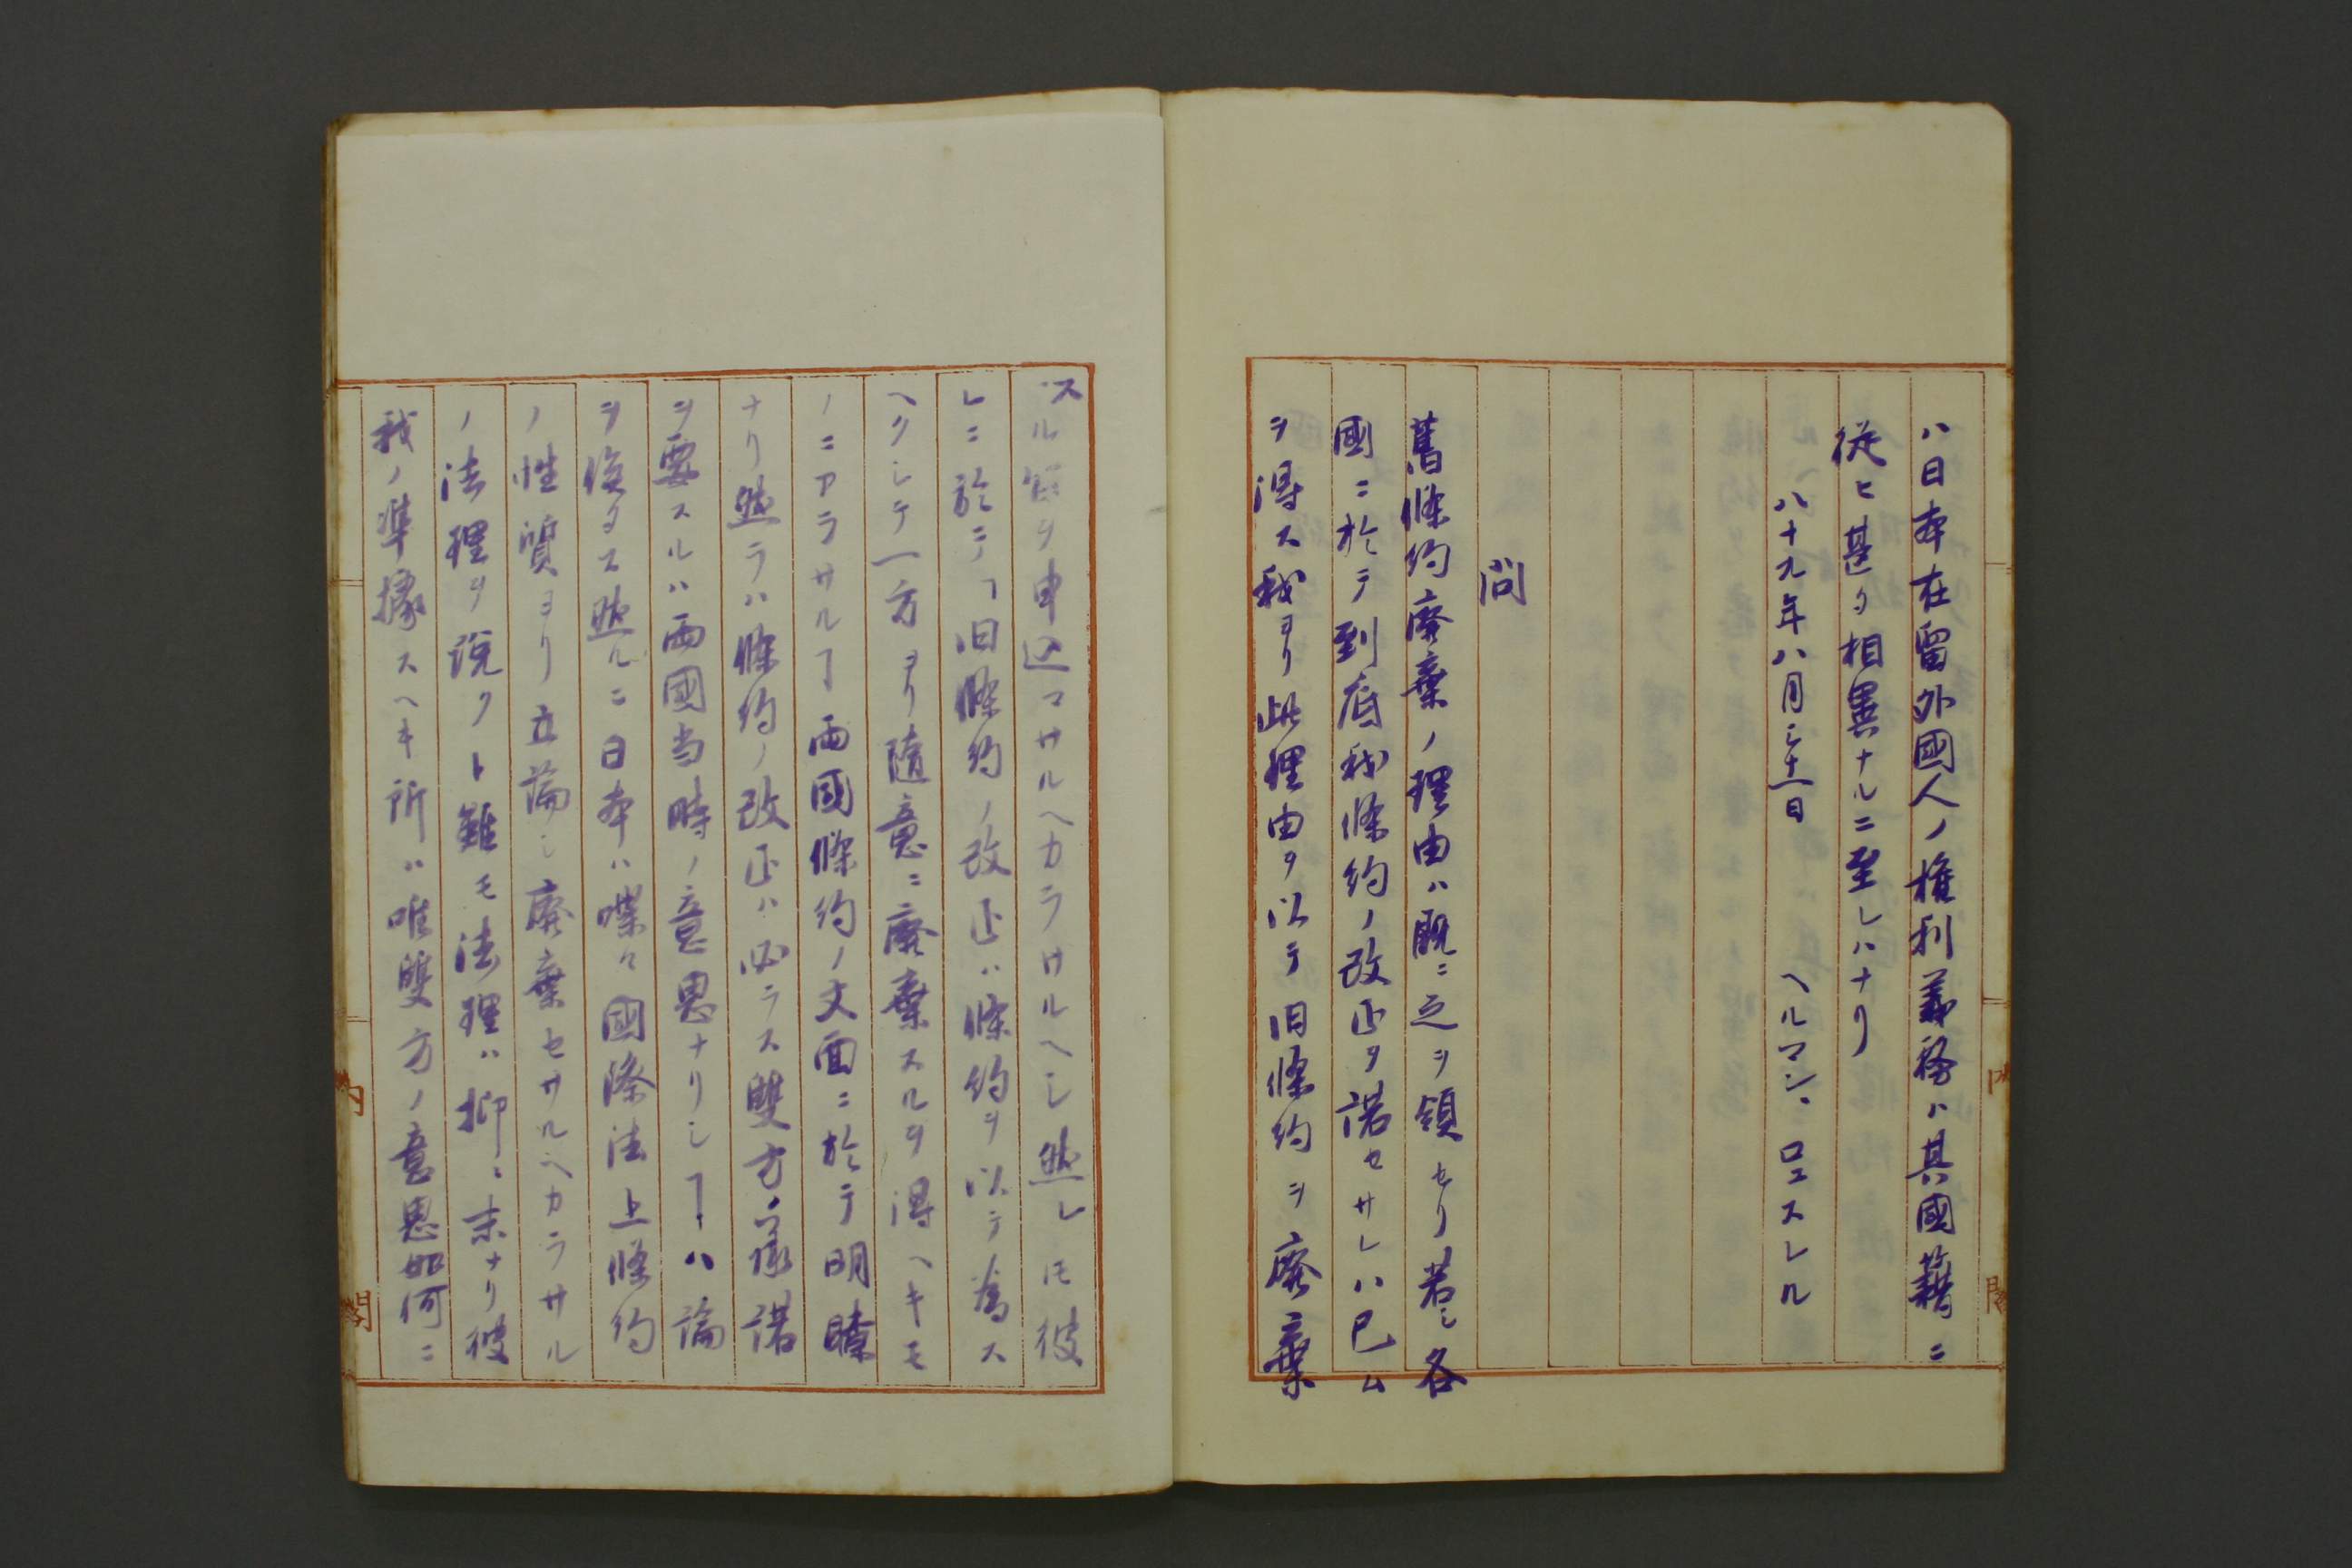 ハ日本在留外國人ノ権利義務ハ其國籍ニ
従ヒ甚タ相異ナルニ至レハナリ
八十九年八月三十一日
ヘルマン、ロエスレル
問
舊條約廃棄ノ理由ハ既ニ之ヲ領セリ若シ各
國ニ於テ到底我條約ノ改正ヲ諾セサレハ已ム
ヲ得ス我ヨリ此理由ヲ以テ旧條約ヲ廃棄
スル旨ヲ申込マサルヘカラサルヘシ然レトモ彼
レニ於テ「旧條約ノ改正ハ條約ヲ以テ為ス
ヘクシテ一方ヨリ随意ニ廃棄スルヲ得ヘキモ
ノニアラサルヿ両國條約ノ文面ニ於テ明瞭
ナリ然ラハ條約ノ改正ハ必ラス雙方ノ承諾
ヲ要スルハ両國当時ノ意思ナリシヿハ論
ヲ俟タス然ルニ日本ハ喋々國際法上條約
ノ性質ヨリ立論シ廃棄セサルヘカラサル
ノ法理ヲ説クト雖モ法理ハ抑々末ナリ彼
我ノ準據スヘキ所ハ唯雙方ノ意思如何ニ
内閣
内閣